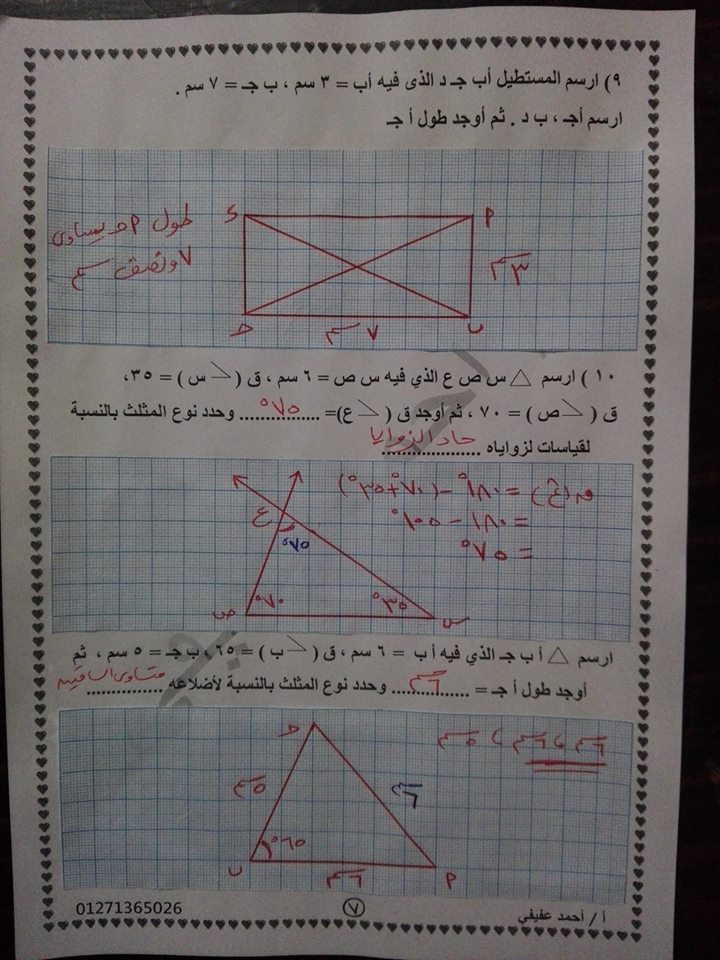 ٩) ارسم المستطيل أب جـ د الذى فيه أب = ٣ سم ، ب جـ = ٧ سم .
ارسم أجـ ، ب د . ثم أوجد طول أ جـ
طول أحـ يساوى
٧ ونصف سم
٥
أ
٣ سم
حـ
٧ سم
ب
١٠ ) ارسم △ س ص ع الذي فيه س ص = ٦ سم ، ق (∠ س ) = ٣٥ ،
ق (∠ ص ) = ٧٠ ، ثم أوجد ق (∠ ع)= ٧٥° وحدد نوع المثلث بالنسبة
لقياسات لزواياه حاد الزوايا
ق (ع) = ١٨٠° - (٧٠°+٣٥°)
= ١٨٠ - ١٠٥°
= ٧٥°
ع
٧٥°
٧٠°
٣٥°
ص
س
ارسم △ أ ب جـ الذي فيه أ ب = ٦ سم ، ق (∠ ب ) = ٦٥ ، ب جـ = ٥ سم ، ثم
أوجد طول أ جـ = ٦ سم وحدد نوع المثلث بالنسبة لأضلاعه متساوى الساقين
٦ سم ، ٦ سم ، ٥ سم
حـ
٥ سم
٦ سم
٦٥°
ب
٦ سم
أ
أ / أحمد عفيفي
٧
01271365026